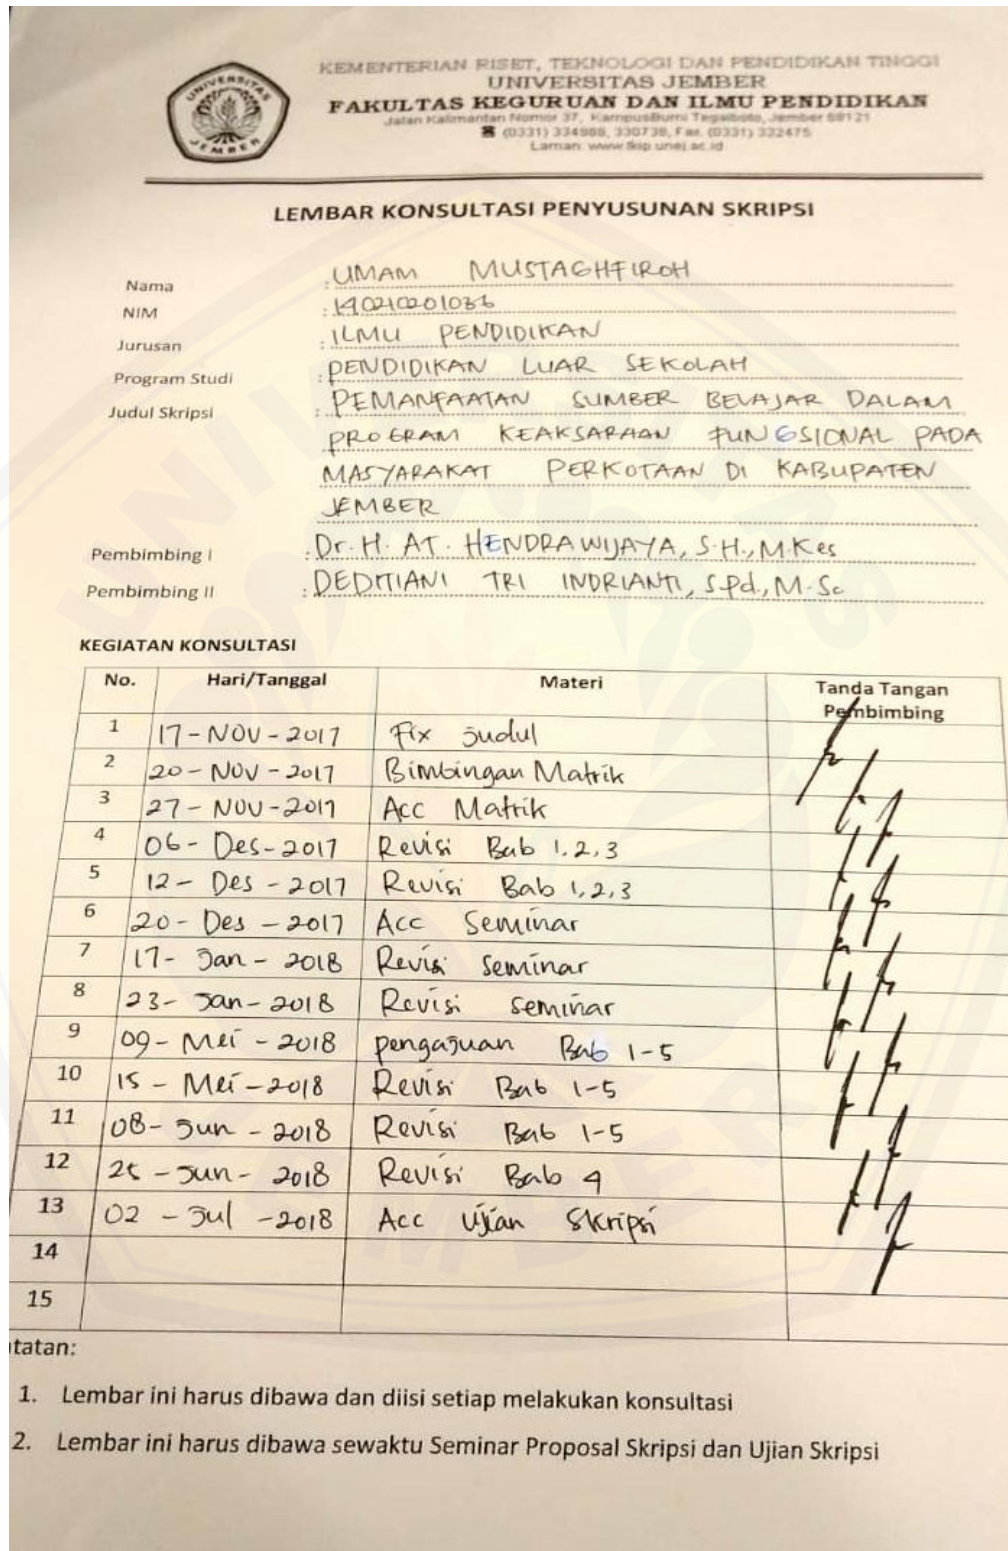 UNIVERSITAS
JEMBER
KEMENTERIAN RISET, TEKNOLOGI DAN PENDIDIKAN TINGGI
UNIVERSITAS JEMBER
FAKULTAS KEGURUAN DAN ILMU PENDIDIKAN
Jalan Kalimantan Nomor 37, KampusBumi Tegalboto, Jember 68121
(0331) 334988, 330738, Fax. (0331) 332475
Laman: www.fkip.unej.ac.id
LEMBAR KONSULTASI PENYUSUNAN SKRIPSI
Nama : UMAM MUSTAGHFIROH
NIM :
Jurusan : ILMU PENDIDIKAN
Program Studi : PENDIDIKAN LUAR SEKOLAH
Judul Skripsi : PEMANFAATAN SUMBER BELAJAR DALAM
PROGRAM KEAKSARAAN FUNGSIONAL PADA
MASYARAKAT PERKOTAAN DI KABUPATEN
JEMBER
Pembimbing I : Dr. H. AT. HENDRAWIJAYA, S.H., M.Kes
Pembimbing II : DEDITIANI TRI INDRIANTI, S.Pd., M.Sc
KEGIATAN KONSULTASI
No. Hari/Tanggal Materi Tanda Tangan
Pembimbing
1 17-NOV-2017 Fix Judul
2 20-NOV-2017 Bimbingan Matrik
3 27-NOV-2017 Acc Matrik
4 06-Des-2017 Revisi Bab 1,2,3
5 12-Des-2017 Revisi Bab 1,2,3
6 20-Des-2017 Acc Seminar
7 17-Jan-2018 Revisi Seminar
8 23-Jan-2018 Revisi seminar
9 09-Mei-2018 pengajuan Bab 1-5
10 15-Mei-2018 Revisi Bab 1-5
11 08-Jun-2018 Revisi Bab 1-5
12 25-Jun-2018 Revisi Bab 4
13 02-Jul-2018 Acc Ujian Skripsi
14
15
tatan:
1. Lembar ini harus dibawa dan diisi setiap melakukan konsultasi
2. Lembar ini harus dibawa sewaktu Seminar Proposal Skripsi dan Ujian Skripsi